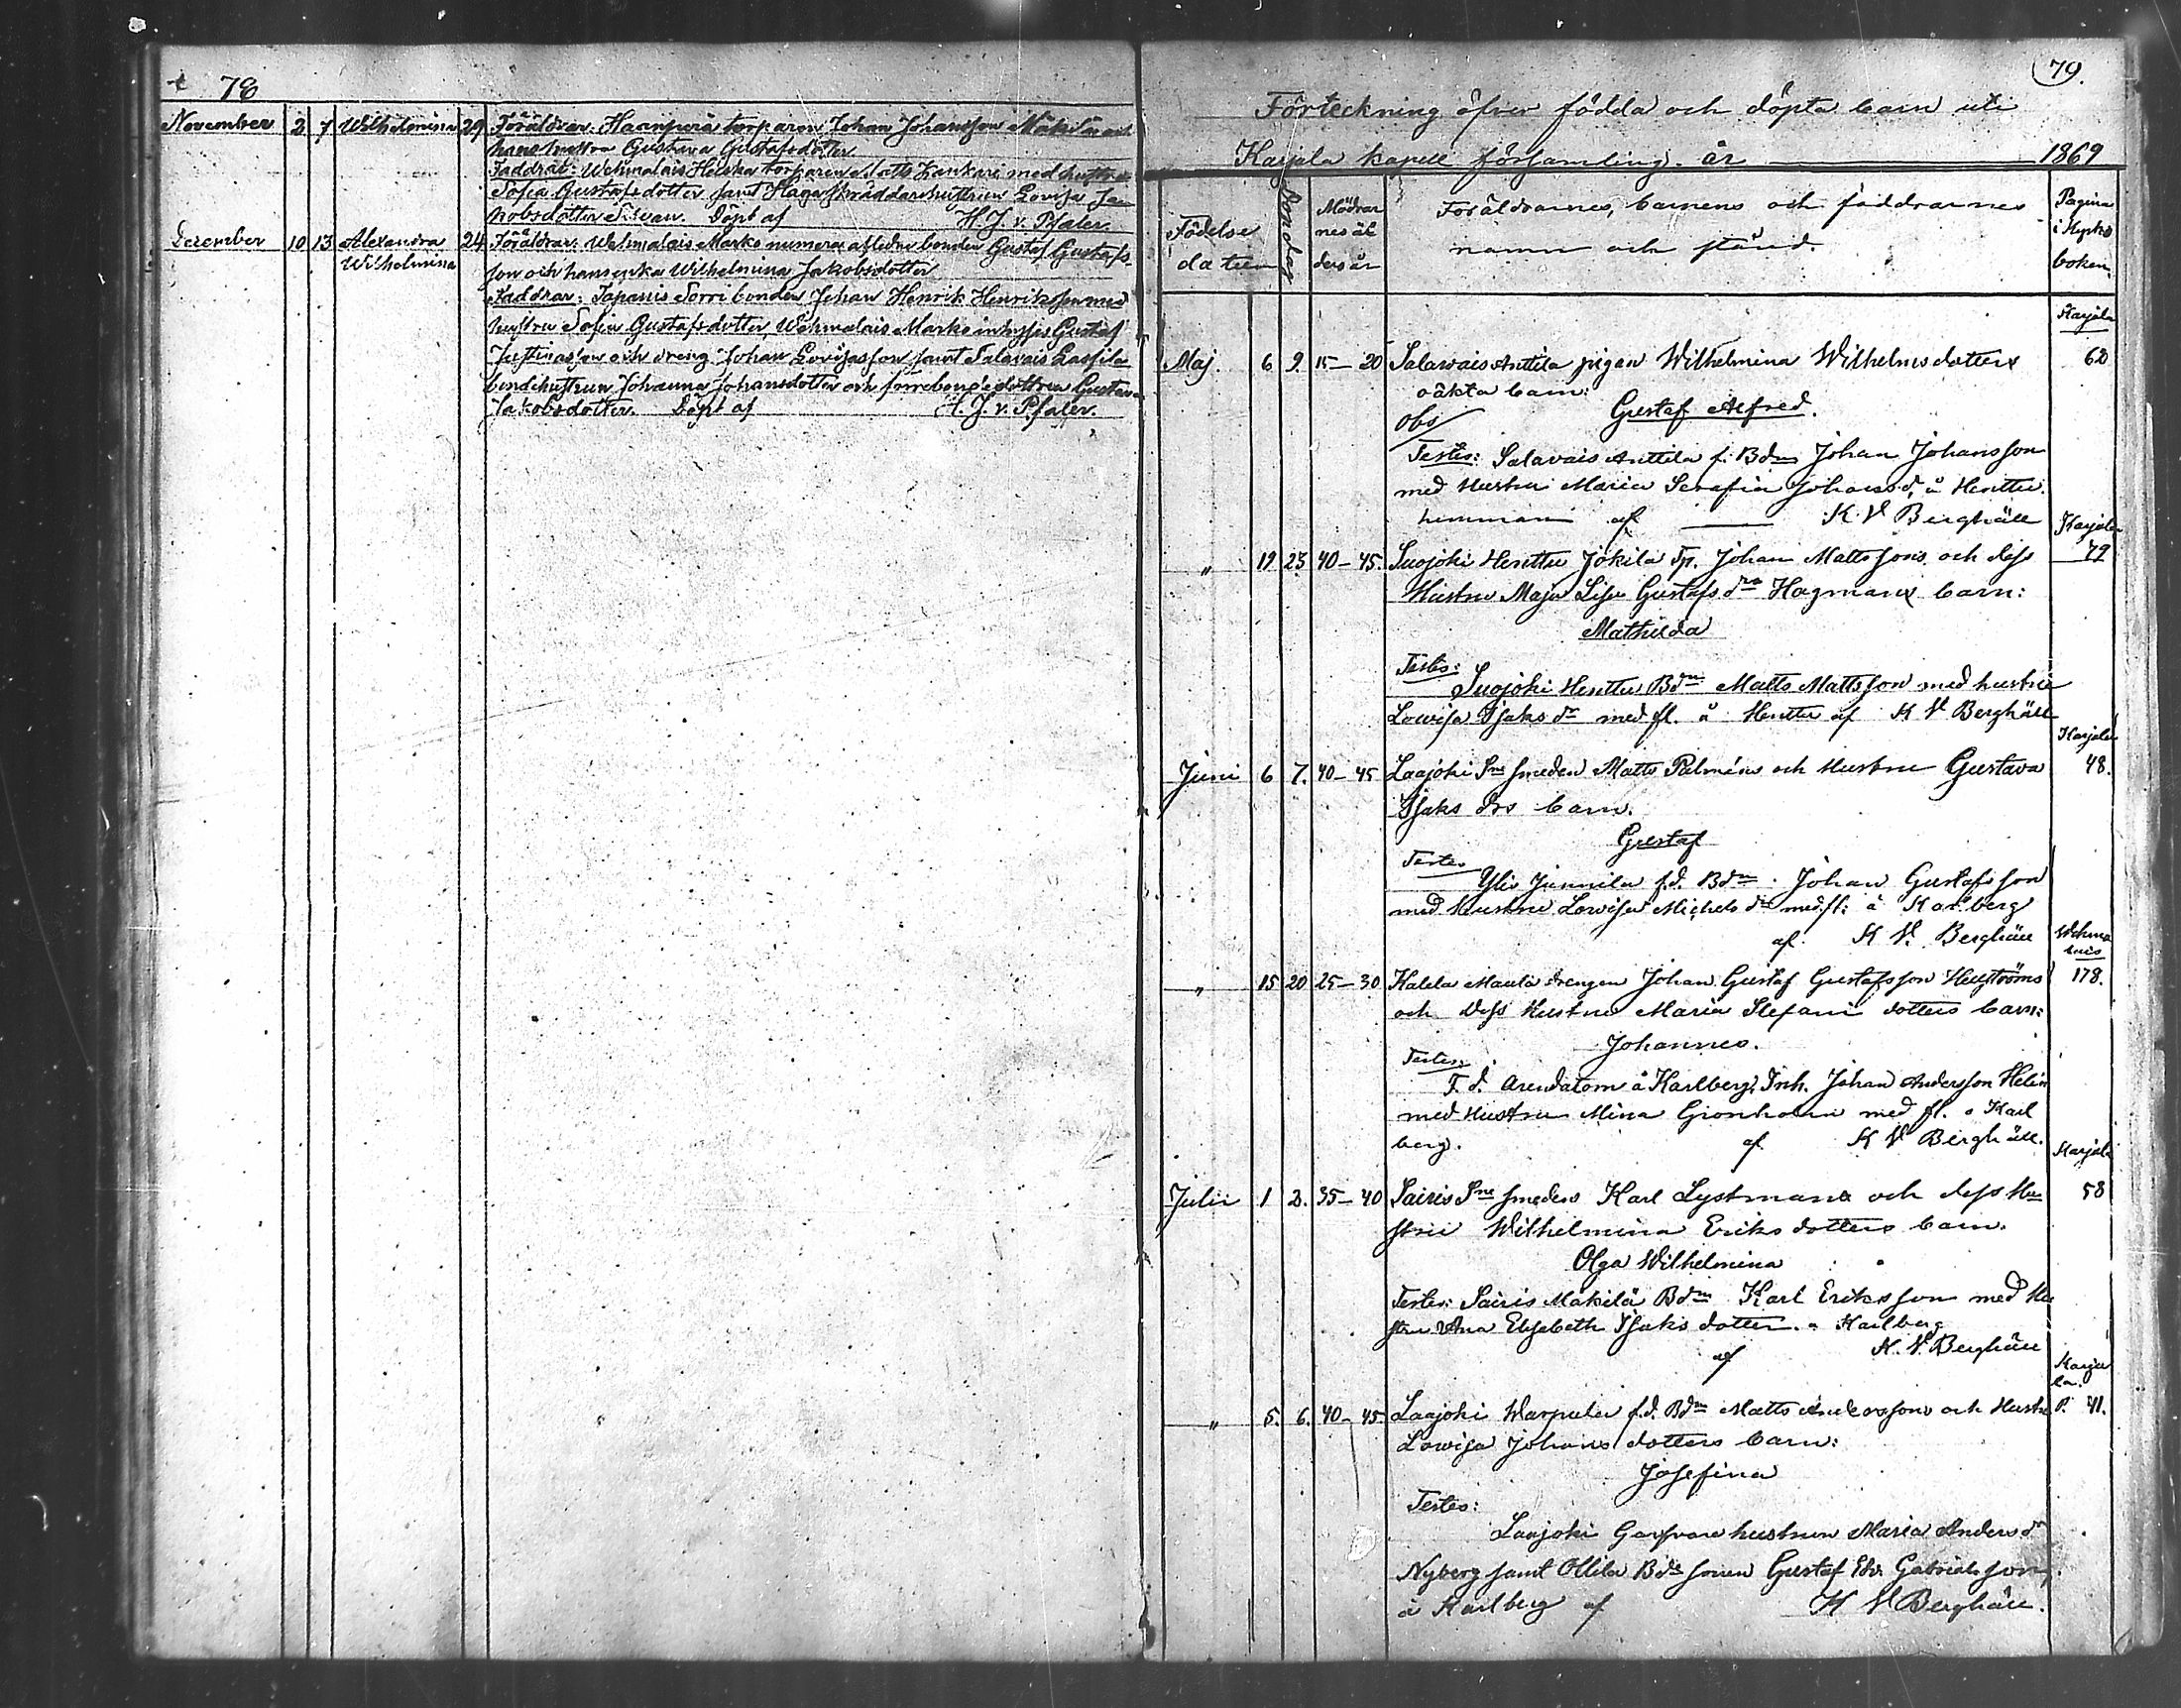 78
November 2 7 Wilhelmina 29 Föräldrar: Haanperä torparen Johan Johansson Mäkilä och
hans hustru Gustava Gustafsdotter
Faddrar: Wehmalais Heiska torparen Matts Kankari med hustru
Sofia Gustafsdotter samt Haga skräddarehustrun Lovisa Ja-
kobsdotter Döpt af H. J. v. Pfaler.
December 10 13 Alexandra 24 Föräldrar: Wehmalais Marko numera aflidne bonden Gustaf Gustafs-
Wilhelmina son och hans enka Wilhelmina Jakobsdotter
Faddrar: Tapanis Sorri bonden Johan Henrik Henriksson med
hustru Sofia Gustafsdotter, Wehmalais Marko inhyses Gustaf
Justinasson och dreng Johan Lovisasson samt Salavais Lassila
bondehustrun Johanna Johansdotter och Gustava
Jakobsdotter. Döpt af H. J. v. Pfaler.
79.
Förteckning öfver födda och döpta barn uti
Karjala kapell församling år 1869
Födelse datum Mödrarnes ålders år Föräldrarnes, barnens och faddrarnes namn och stånd. Pagina i Kyrkoboken
Karjala
Maj. 6 9. 15–20 Salavais Anttila pigan Wilhelmina Wilhelmsdotters 62
oäkta barn:
Gustaf Alfred.
obs/
Testes: Salavais Anttila f. Bdn Johan Johansson
med Hustru Maria Serafia Johansd. å Henttu
hemman af K V Berghäll
Karjala
" 19 23 40–45. Suojoki Henttu Jokila Tp. Johan Mattssons och dess 79
Hustru Maja Lisa Gustafs dra Hagmans barn:
Mathilda
Testes:
Suojoki Henttu Bdn Matts Mattsson med hustru
Lowisa Isaks dr med fl. å Henttu af K V Berghäll
Karjala
Juni 6 7. 40–45 Laajoki Sne smeden Matts Palméns och Hustru Gustava 48.
Isaks drs barn.
Gustaf
Testes
Yli Junnila f.d. Bdn Johan Gustafsson
med Hustru Lowisa Michels dr med fl: å Karlberg
af K V. Berghäll
Wehmalais
" 15 20 25–30 Kalela Maula drengen Johan Gustaf Gustafsson Hengströms 178.
och Dess Hustru Maria Stefani dotters barn:
Johannes.
Testes:
F. d. Arendatorn å Karlberg, Inh. Johan Andersson Helin
med Hustru Mina Gronholm med fl. å Karl
berg. af K V Berghäll.
Karjala
Julii 1 2. 35–40 Sairis Sne smedens Karl Lystmans och dess Hu- 58
stru Wilhelmina Eriks dotters barn.
Olga Wilhelmina
Testes: Sairis Mäkilä Bdn Karl Eriksson med Hu
stru Ana Elisabeth Isaks dotter. å Karlberg
af K. V. Berghäll
Karjala.
" 5. 6. 40–45 Laajoki Warpula f.d. Bdn Matts Anderssons och Hustru P. 41.
Lowisa Johans dotters barn:
Josefina
Testes:
Laajoki Garfvare hustrun Maria Anders dr
Nyberg samt Ollila Bde sonen Gustaf Edv. Gabrielsson,
å Karlberg af K V Berghäll.